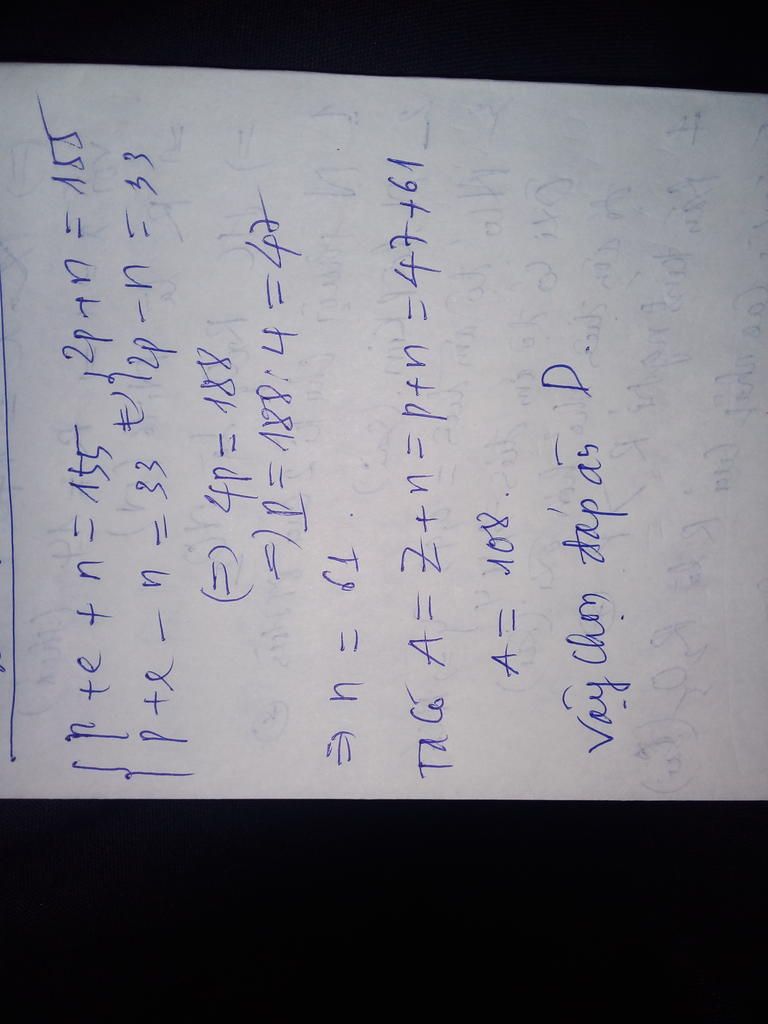 { p + e + n = 155 <=> { 2p + n = 155
{ p + e - n = 33 { 2p - n = 33
(=) 4p = 188
=) p = 188 : 4 = 47
=> n = 61.
Ta có A = Z + n = p + n = 47 + 61
A = 108.
Vậy chọn đáp án D.